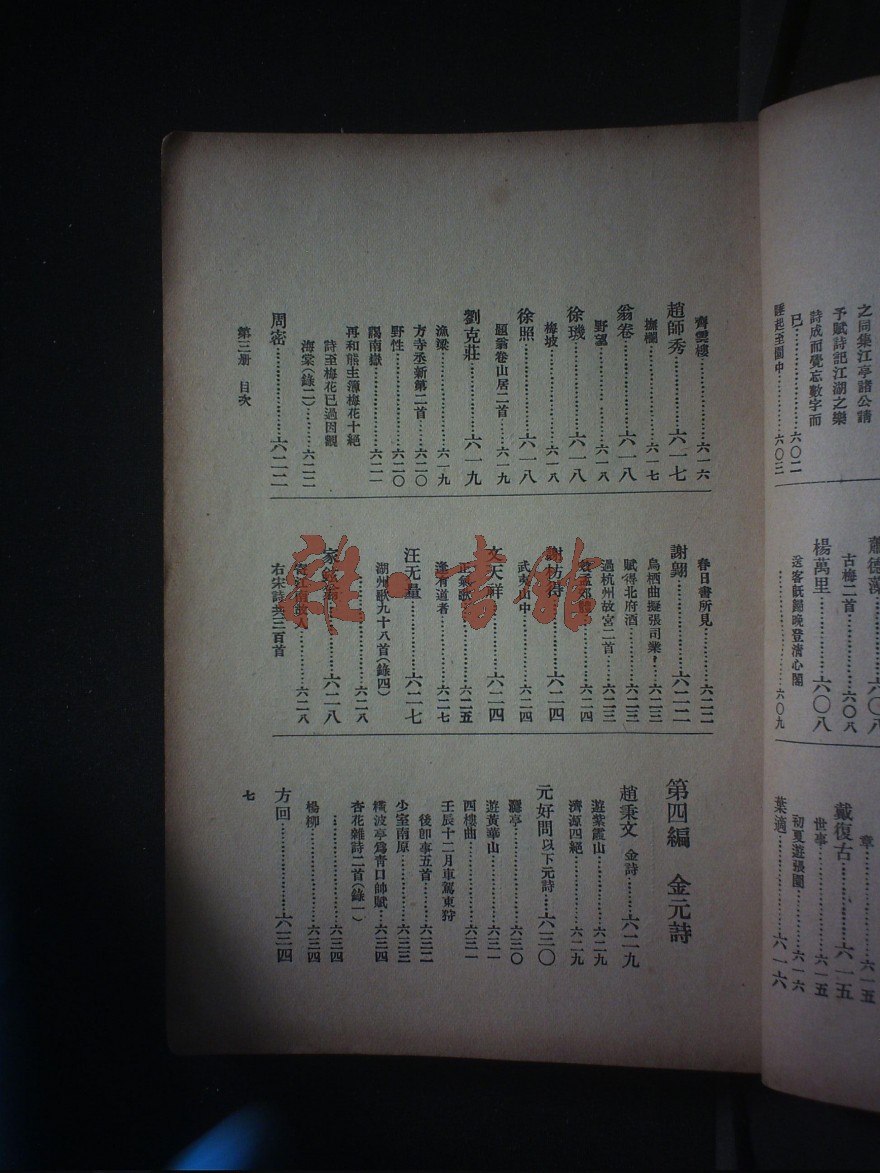 之同集江亭諸公請
予賦詩記江湖之樂
詩成而覺忘數字而
已……六〇二
睡起至園中……六〇三
蕭德藻……六〇八
古梅二首……六〇八
楊萬里……六〇八
送客旣歸晚登淸心閣
……六〇九
章……六一五
戴復古……六一五
世事……六一五
初夏遊張園……六一六
葉適……六一六
齊雲樓……六一六
趙師秀……六一七
撫欄……六一七
翁卷……六一八
野望……六一八
徐璣……六一八
梅坡……六一八
徐照……六一八
題翁卷山居二首…六一九
劉克莊……六一九
漁梁……六一九
方寺丞新第二首…六二〇
野性……六二〇
謁南嶽……六二一
再和熊主簿梅花十絕
詩至梅花已過因觀
海棠(錄二)……六二二
周密……六二二
春日書所見……六二二
謝翺……六二二
烏栖曲擬張司業…六二三
賦得北府酒……六二三
過杭州故宮二首…六二三
效孟郊體……六二四
謝枋得……六二四
武夷山中……六二四
文天祥……六二四
正氣歌……六二五
逢有道者……六二七
汪元量……六二七
湖州歌九十八首(錄四)
……六二八
家鉉翁……六二八
寄江南故人……六二八
右宋詩共三百首
第四編 金元詩
趙秉文 金詩……六二九
遊紫霞山……六二九
濟源四絕……六二九
元好問 以下元詩…六三〇
灅亭……六三〇
遊黃華山……六三一
西樓曲……六三一
壬辰十二月車駕東狩
後卽事五首……六三二
少室南原……六三三
橫波亭爲靑口帥賦…六三四
杏花雜詩二首(錄一)
……六三四
楊柳……六三四
方回……六三四
第三册 目次
七
雜·書館